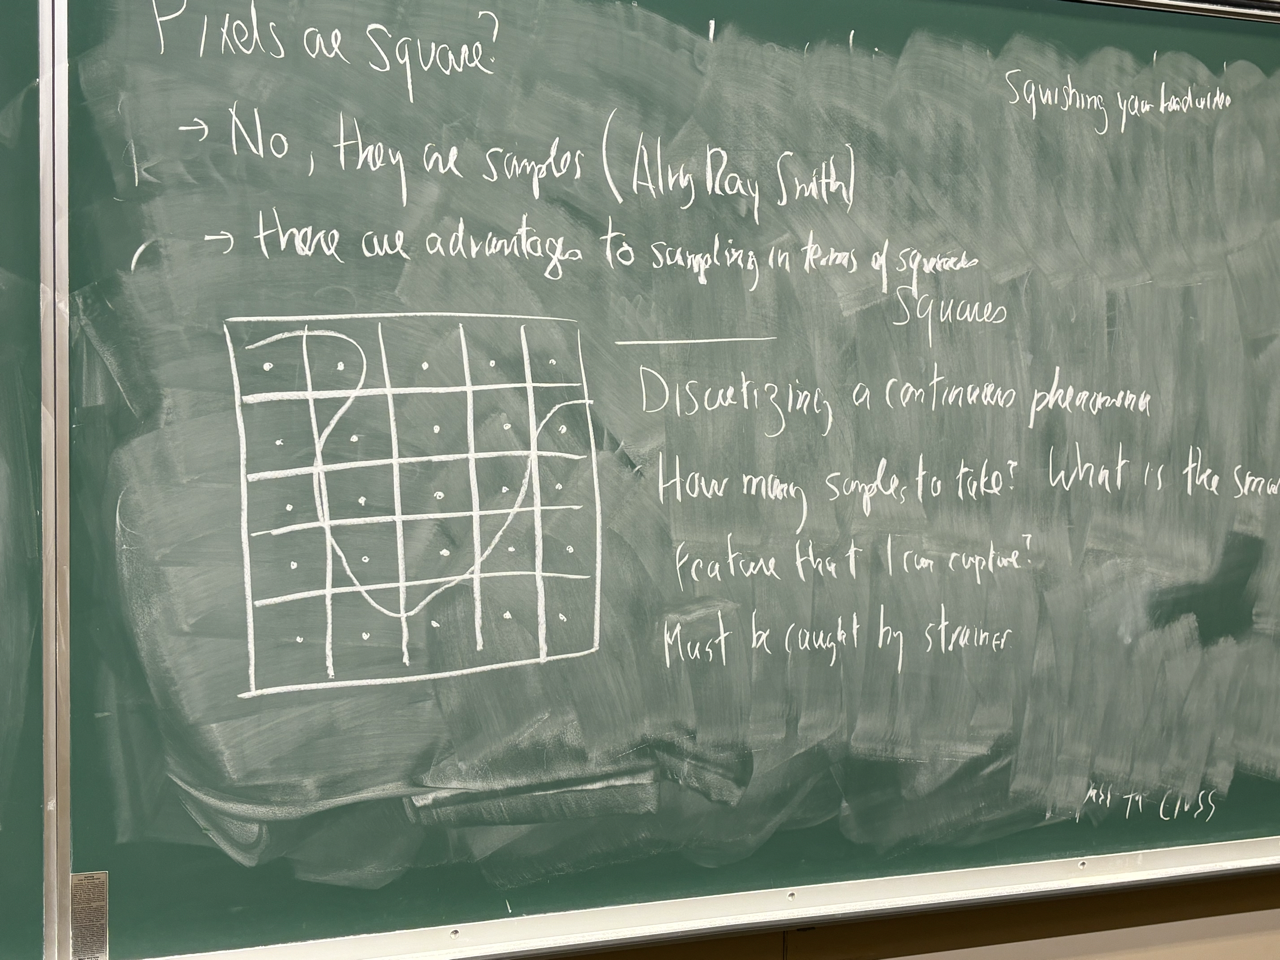 Pixels are square?
Squishing your
→ No, they are samples (Alvy Ray Smith)
→ there are advantages to sampling in terms of squares
Squares
Discretizing a continuous phenomena
How many samples to take? What is the
Feature that I can capture?
Must be caught by strainer
to class